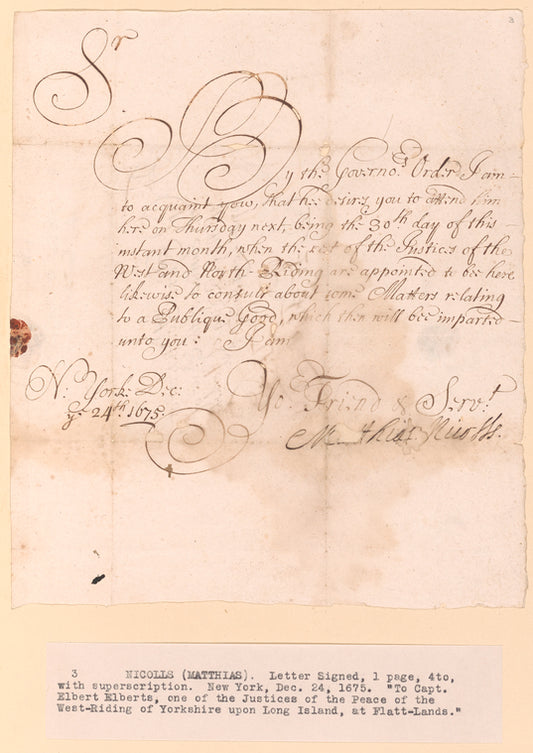 3
Sr.
By the Governors. Order I am
to acquaint yow, that hee desires you to attend him
here on Thursday next, being the 30th day of this
instant month, when the rest of the Justices of the
West and North-Riding are appointed to bee here
likewise to consult about some Matters relating
to a Publique Good, which then will bee imparted
unto you: I am
N. York Dec:
ye 24th 1675.
Yor. Friend & Servt.
Matthias Nicolls.
3 NICOLLS (MATTHIAS). Letter Signed, 1 page, 4to,
with superscription. New York, Dec. 24, 1675. "To Capt.
Elbert Elberts, one of the Justices of the Peace of the
West-Riding of Yorkshire upon Long Island, at Flatt-Lands."